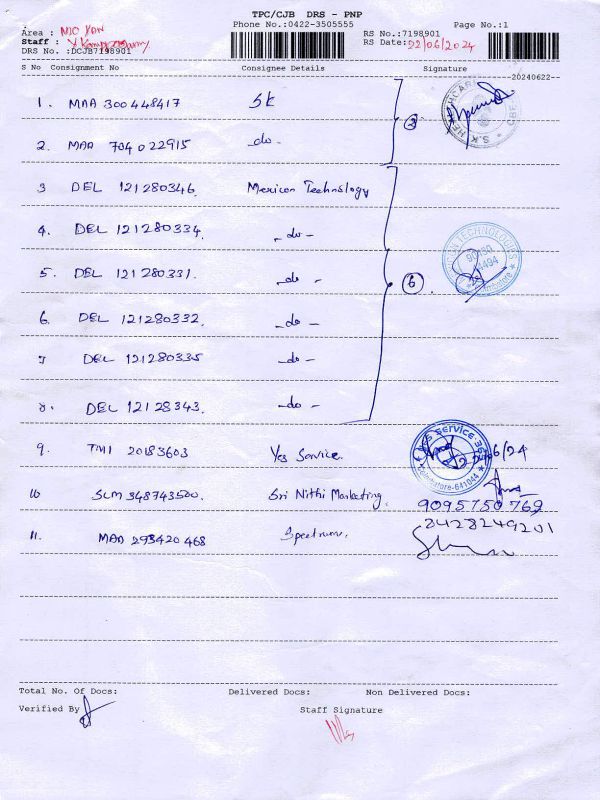 TPC/CJB DRS - PNP
Phone No.:0422-3505555 Page No.:1
Area : NIC VAN RS No.:7198901
Staff : RS Date:22/06/2024
DRS No. :DCJB7198901
S No Consignment No Consignee Details Signature
--20240622--
1. MAA 300448417 SK
2. MAA 704022915 do- 2
3 DEL 121280346 Mexicon Technology
4. DEL 121280334 -do-
5. DEL 121280331. -do- 6
6 DEL 121280332. -do-
7 DEL 121280335 -do-
8. DEL 12128343. -do-
9. TMI 20183603 Yes Service. 6/24
10 SLM 348743500. Sri Nithi Marketing. 9095750769
8428249201
11. MAA 293420468 Spectrum.
Total No. Of Docs: Delivered Docs: Non Delivered Docs:
Verified By
Staff Signature